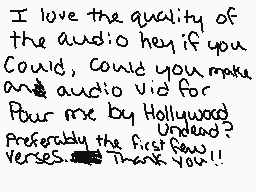 I love the quality of
the audio hey if you
Could, could you make
an audio vid for
Pour me by Hollywood
Undead?
Preferably the first few
verses. Thank you!!